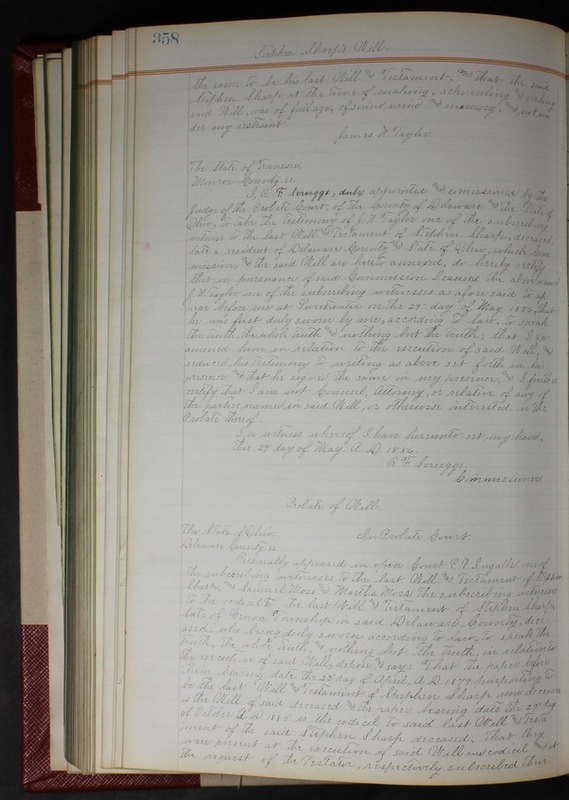 358
Stephen Sharp's Will.
the same to be his last Will and Testament, and that the said
Stephen Sharp at the time of making, acknowledging and sealing
said Will, was of full age, of sound mind and memory, and not un
der any restraint
James N. Taylor
The State of Tennessee,
Monroe County ss
I, R. F. Scruggs, duly appointed and commissioned by the
Judge of the Probate Court, of the County of Delaware and the State of
Ohio, to take the testimony of J. N. Taylor one of the subscribing
witness to the last Will and Testament of Stephen Sharp, deceased,
late a resident of Delaware County and State of Ohio, which Com
mission, and the said Will are hereto annexed, do hereby certify
that in pursuance of said Commission I caused the above named
J. N. Taylor one of the subscribing witnesses as afore said to ap
pear before me at Sweetwater on the 29" day of May 1886, that
he was first duly sworn by me, according to law, to speak
the truth, the whole truth and nothing but the truth; that I ex
amined him in relation to the execution of said Will, and
reduced his testimony to writing as above set forth in his
presence and that he signed the same in my presence, and I further
certify that I am not Counsel, Attorney, or relative of any of
the parties named in said Will, or otherwise interested in the
Probate thereof.
In witness whereof I have hereunto set my hand,
this 29 day of May A. D. 1886.
R. F. Scruggs
Commissioner
Probate of Will.
The State of Ohio
Delaware County ss
In Probate Court.
Personally appeared in open Court P. F. Ingalls one of
the subscribing witnesses to the last Will and Testament of Stephen
Sharp, and Samuel Moses and Martha Moses the subscribing witnesses
to the codicil to the last Will and Testament of Stephen Sharp,
late of Genoa Township in said Delaware County, dece
ased; who being duly sworn according to law, to speak the
truth, the whole truth, and nothing but the truth, in relation to
the execution of said Will, depose and say: That the paper before
them bearing date the 23 day of April, A. D. 1879 purporting to
be the last Will and Testament of Stephen Sharp now deceased
is the Will of said deceased and the paper bearing date the 29" day
of October A. D. 1885 is the codicil to said last Will and Testa
ment of the said Stephen Sharp deceased; That they
were present at the execution of said Will and codicil and at
the request of the Testator, respectively subscribed their